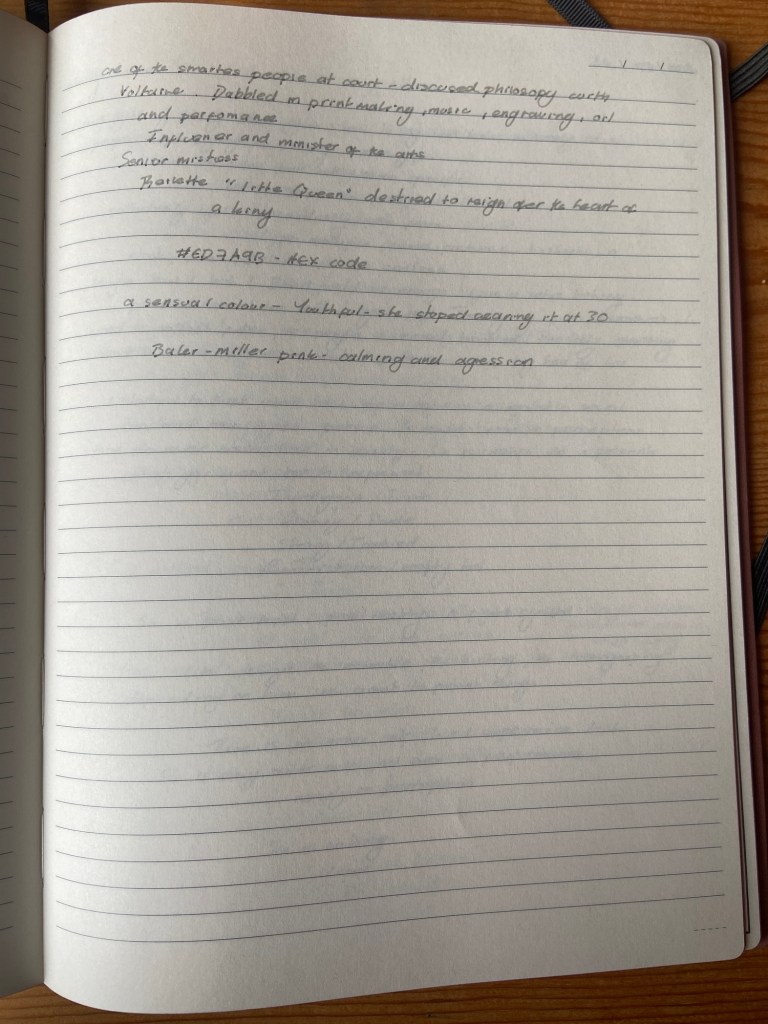 one of the smartes people at court - discused philosopy with
Volturne. Dabbled in printmaking, music, engraving, art
and perfomance
Influencer and minister of the arts
Senior mistress
Reinette "little Queen" destined to reign over the heart of
a king
#ED7A9B - HEX code
a sensual colour - Youthful - she stoped wearing it at 30
Baker-miller pink - calming and agression